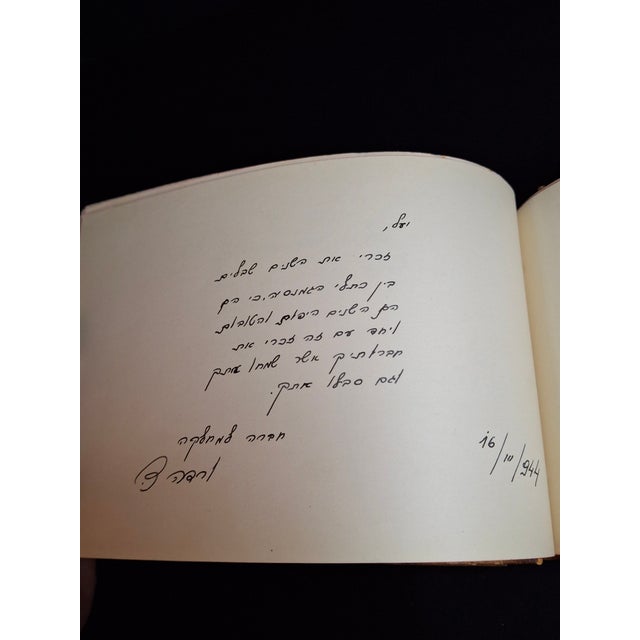 יעל,
זכרי את השנים שבלית
בין כתלי הגמנסיה, כי הם
הם השנים היפות והטובות
ויחד עם זה זכרי את
חברותיך אשר שמחו עמך
וגם סבלו אתך.
חברה למחלקה
ורדה צ.
16/III/944